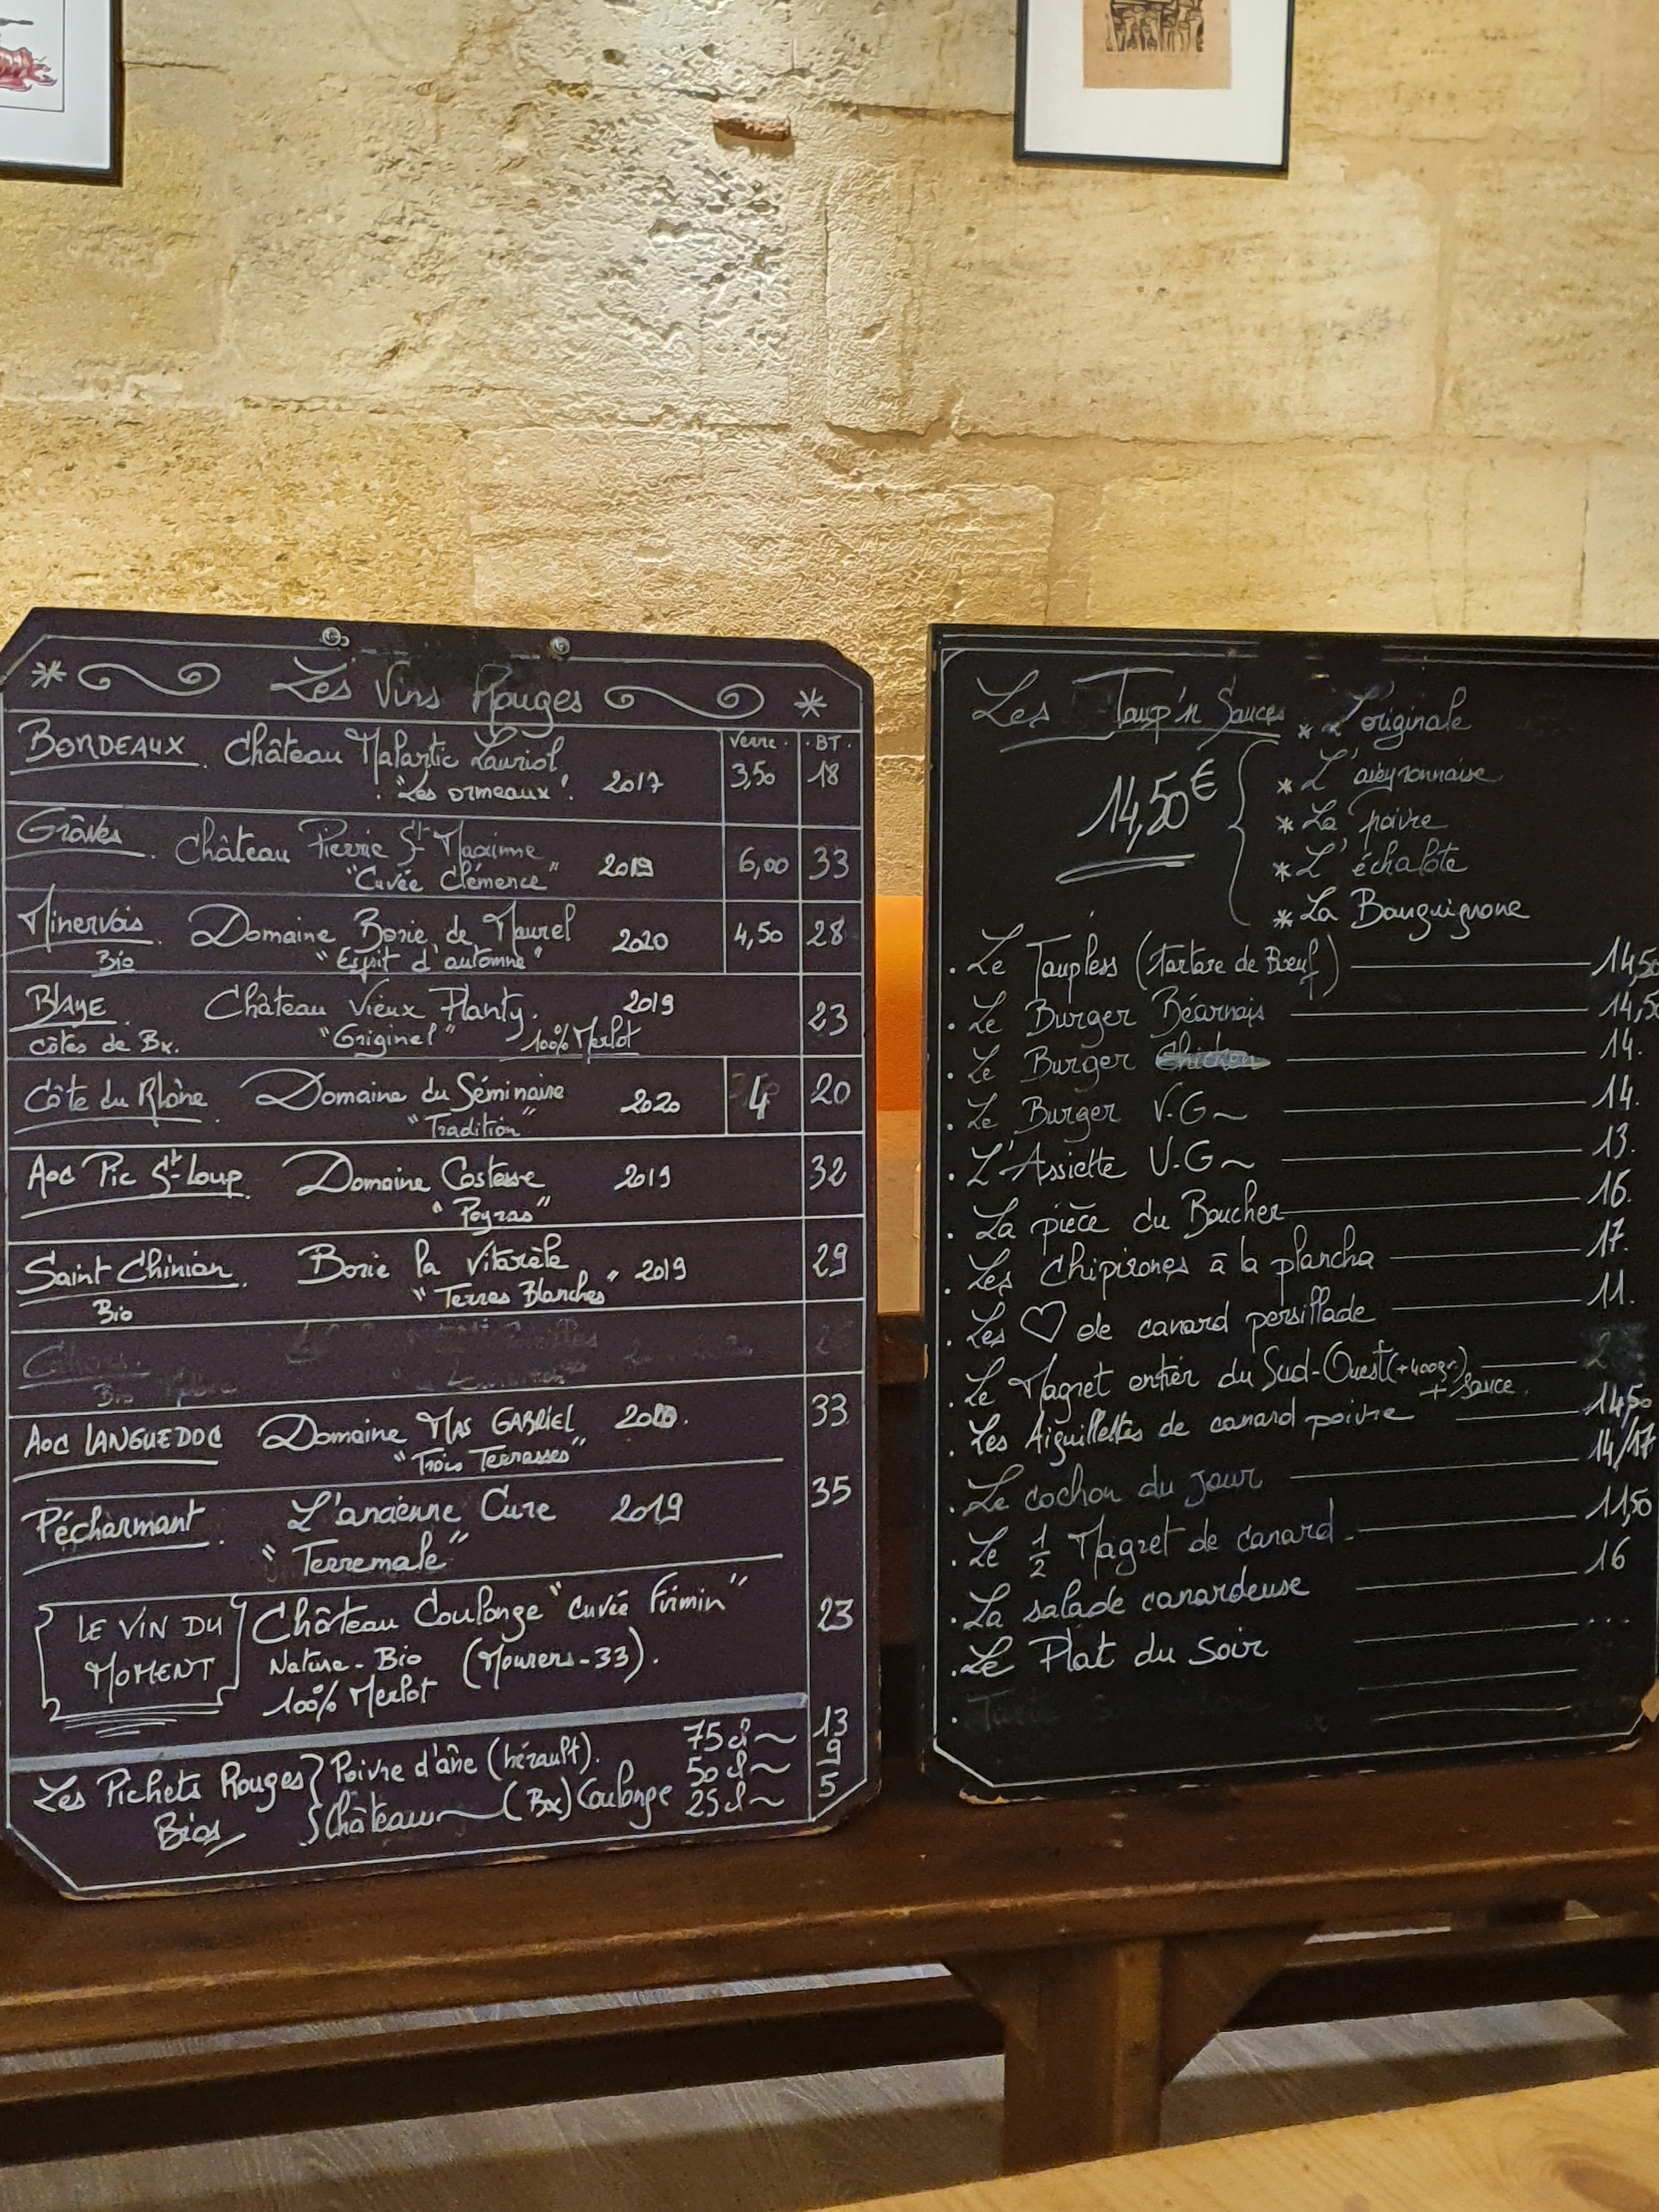 Les Vins Rouges
BORDEAUX. Château Malartic Lauriol
"Les ormeaux". 2017
Verre. BT.
3,50 18
Graves. Château Pierre St Maxime
"Cuvée Clémence" 2019 6,00 33
Minervois Domaine Borie de Maurel 2020 4,50 28
Bio "Esprit d'automne"
BLAYE Château Vieux Planty. 2019 23
côtes de Bx. "Originel" 100% Merlot
Côte du Rhône. Domaine du Séminaire 2020 4 20
"Tradition"
Aoc Pic St-Loup. Domaine Costesse 2019 32
"Peyras"
Saint Chinian. Borie la Vitarèle 2019 29
Bio "Terres Blanches"
Bio
Aoc LANGUEDOC Domaine MAS GABRIEL 33
"Trois Terrasses"
Pécharmant. L'ancienne Cure 2019 35
"Terremale"
LE VIN DU MOMENT
Château Coulonge "Cuvée Firmin" 23
Nature - Bio (Mourens-33).
100% Merlot
Les Pichets Rouges Bios
Poivre d'âne (hérault). 75 cl~ 13
50 cl~ 9
Château~(Bx) Coulonge 25 cl~ 5
Les Taup'n Sauces
14,50€
* L'originale
* L'aveyronnaise
* La poivre
* L'échalote
* La Bourguignone
. Le Taupless (tartare de Bœuf) 14,50
. Le Burger Béarnais 14,50
. Le Burger Chicken 14.
. Le Burger V.G~ 14.
. L'Assiette V.G~ 13.
. La pièce du Boucher 16.
. Les Chipirones à la plancha 17.
. Les ♡ de canard persillade 11.
. Le Magret entier du Sud-Ouest (+400gr.)
+ sauce.
. Les Aiguillettes de canard poivre 14,50
. Le cochon du jour 14/17
. Le 1/2 Magret de canard 11,50
. La salade canardeuse 16
. Le Plat du Soir ...